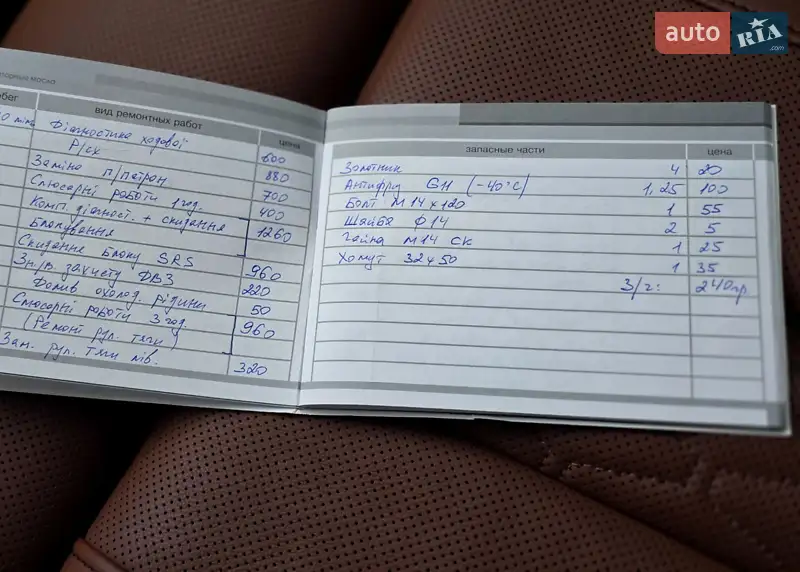 auto RIA .com
вид ремонтных работ цена
Діагностика ходової 600
Р/ск 880
Заміна п/патрон 700
Слюсарні роботи 1 год. 400
Комп. діагност. + скидання 1260
Блокування
Скидання блоку SRS 960
Зн/в. захисту ДВЗ 220
Долив охолод. рідини 50
Слюсарні роботи 3 год. 960
(Ремонт рул. тяги)
Зам. рул. тяги лів. 320
запасные части цена
Золотник 4 20
Антифриз GH (-40°C) 1,25 100
Болт М14х120 1 55
Шайба Ф14 2 5
Гайка М14 СК 1 25
Хомут 32х50 1 35
З/ч: 240гр